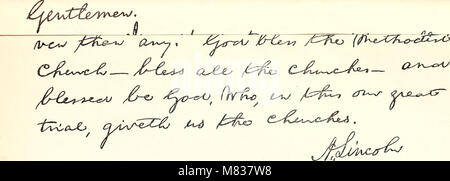 Gentlemen.
ven than any. God bless the Methodist
Church — bless all the churches — and
blessed be God, Who, in this our great
trial, giveth us the churches.
A. Lincoln
alamy
M837W8